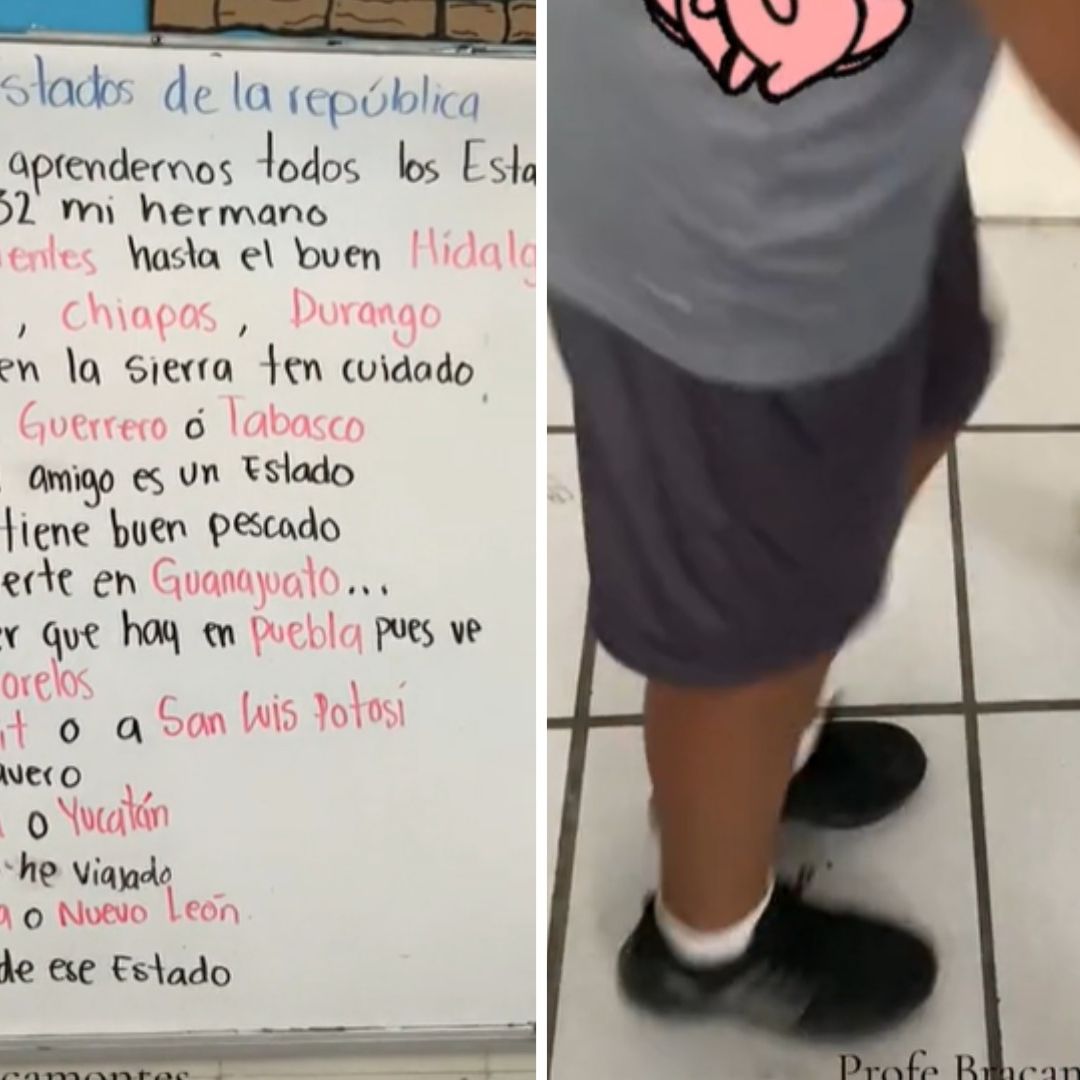 stados de la república
aprendernos todos los Esta
32 mi hermano
entes hasta el buen Hidalg
, Chiapas, Durango
en la sierra ten cuidado
Guerrero ó Tabasco
amigo es un Estado
tiene buen pescado
erte en Guanajuato...
er que hay en puebla pues ve
orelos
it o a San Luis Potosí
avero
o Yucatán
he viajado
a o Nuevo León
de ese Estado
camontes
Profe Bracam